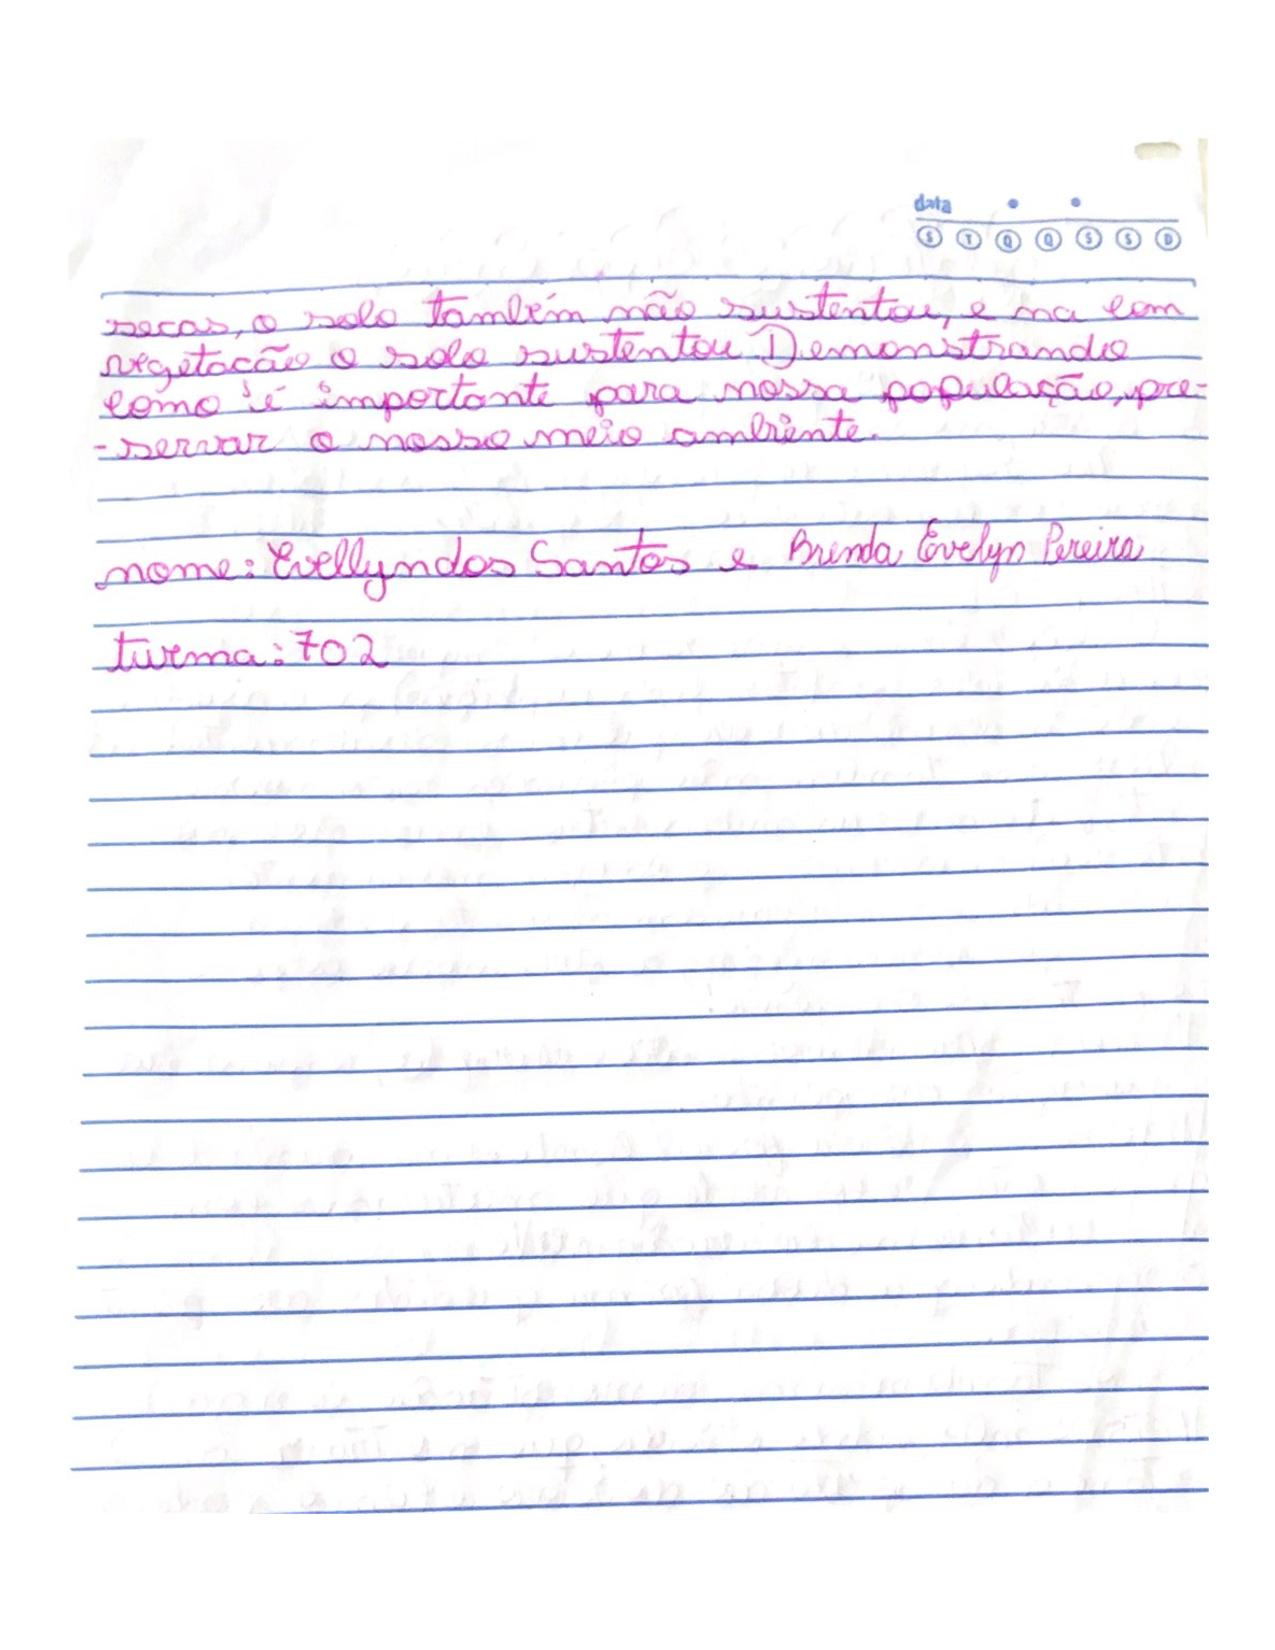 data
S T Q Q S S D
secas, o solo também não sustentou, e na com
vegetacão o solo sustentou Demonstrando
como é importante para nossa população, pre-
-servar o nosso meio ambiente.
nome: Evellyn dos Santos e Brenda Evelyn Pereira
turma: 702